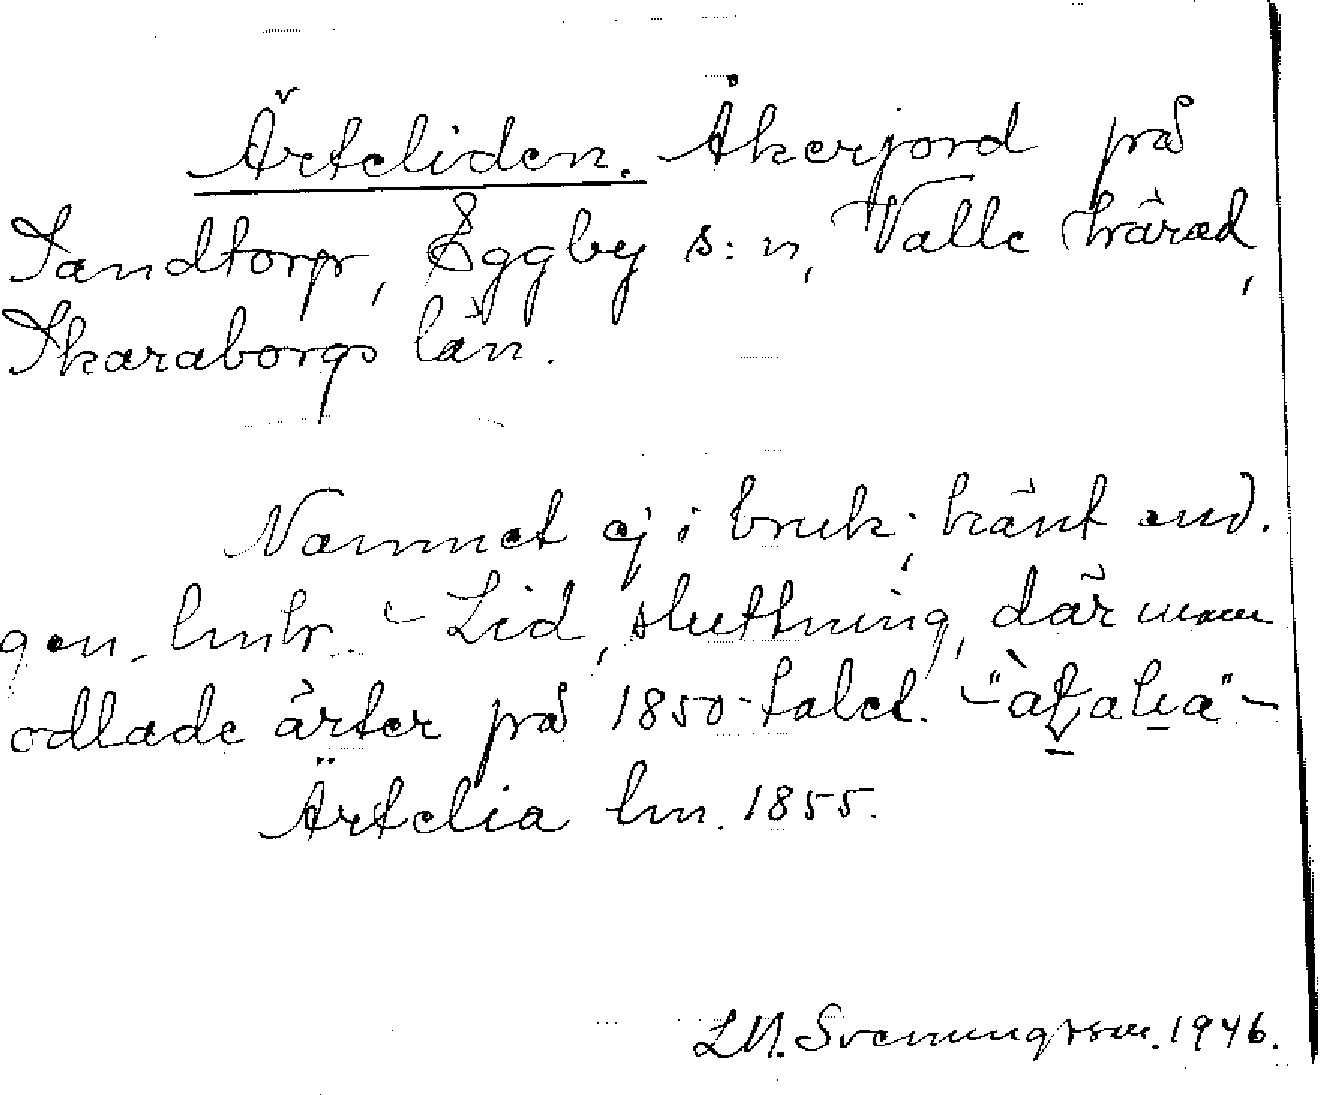 Ärteliden. Åkerjord på
Sandtorp, Eggby s:n, Valle härad,
Skaraborgs län.
Namnet ej i bruk; känt end.
gen. lmhr. - Lid, sluttning, där man
odlade ärter på 1850-talet. -
Ärtelia lm. 1855.
L.M. Svenungsson. 1946.